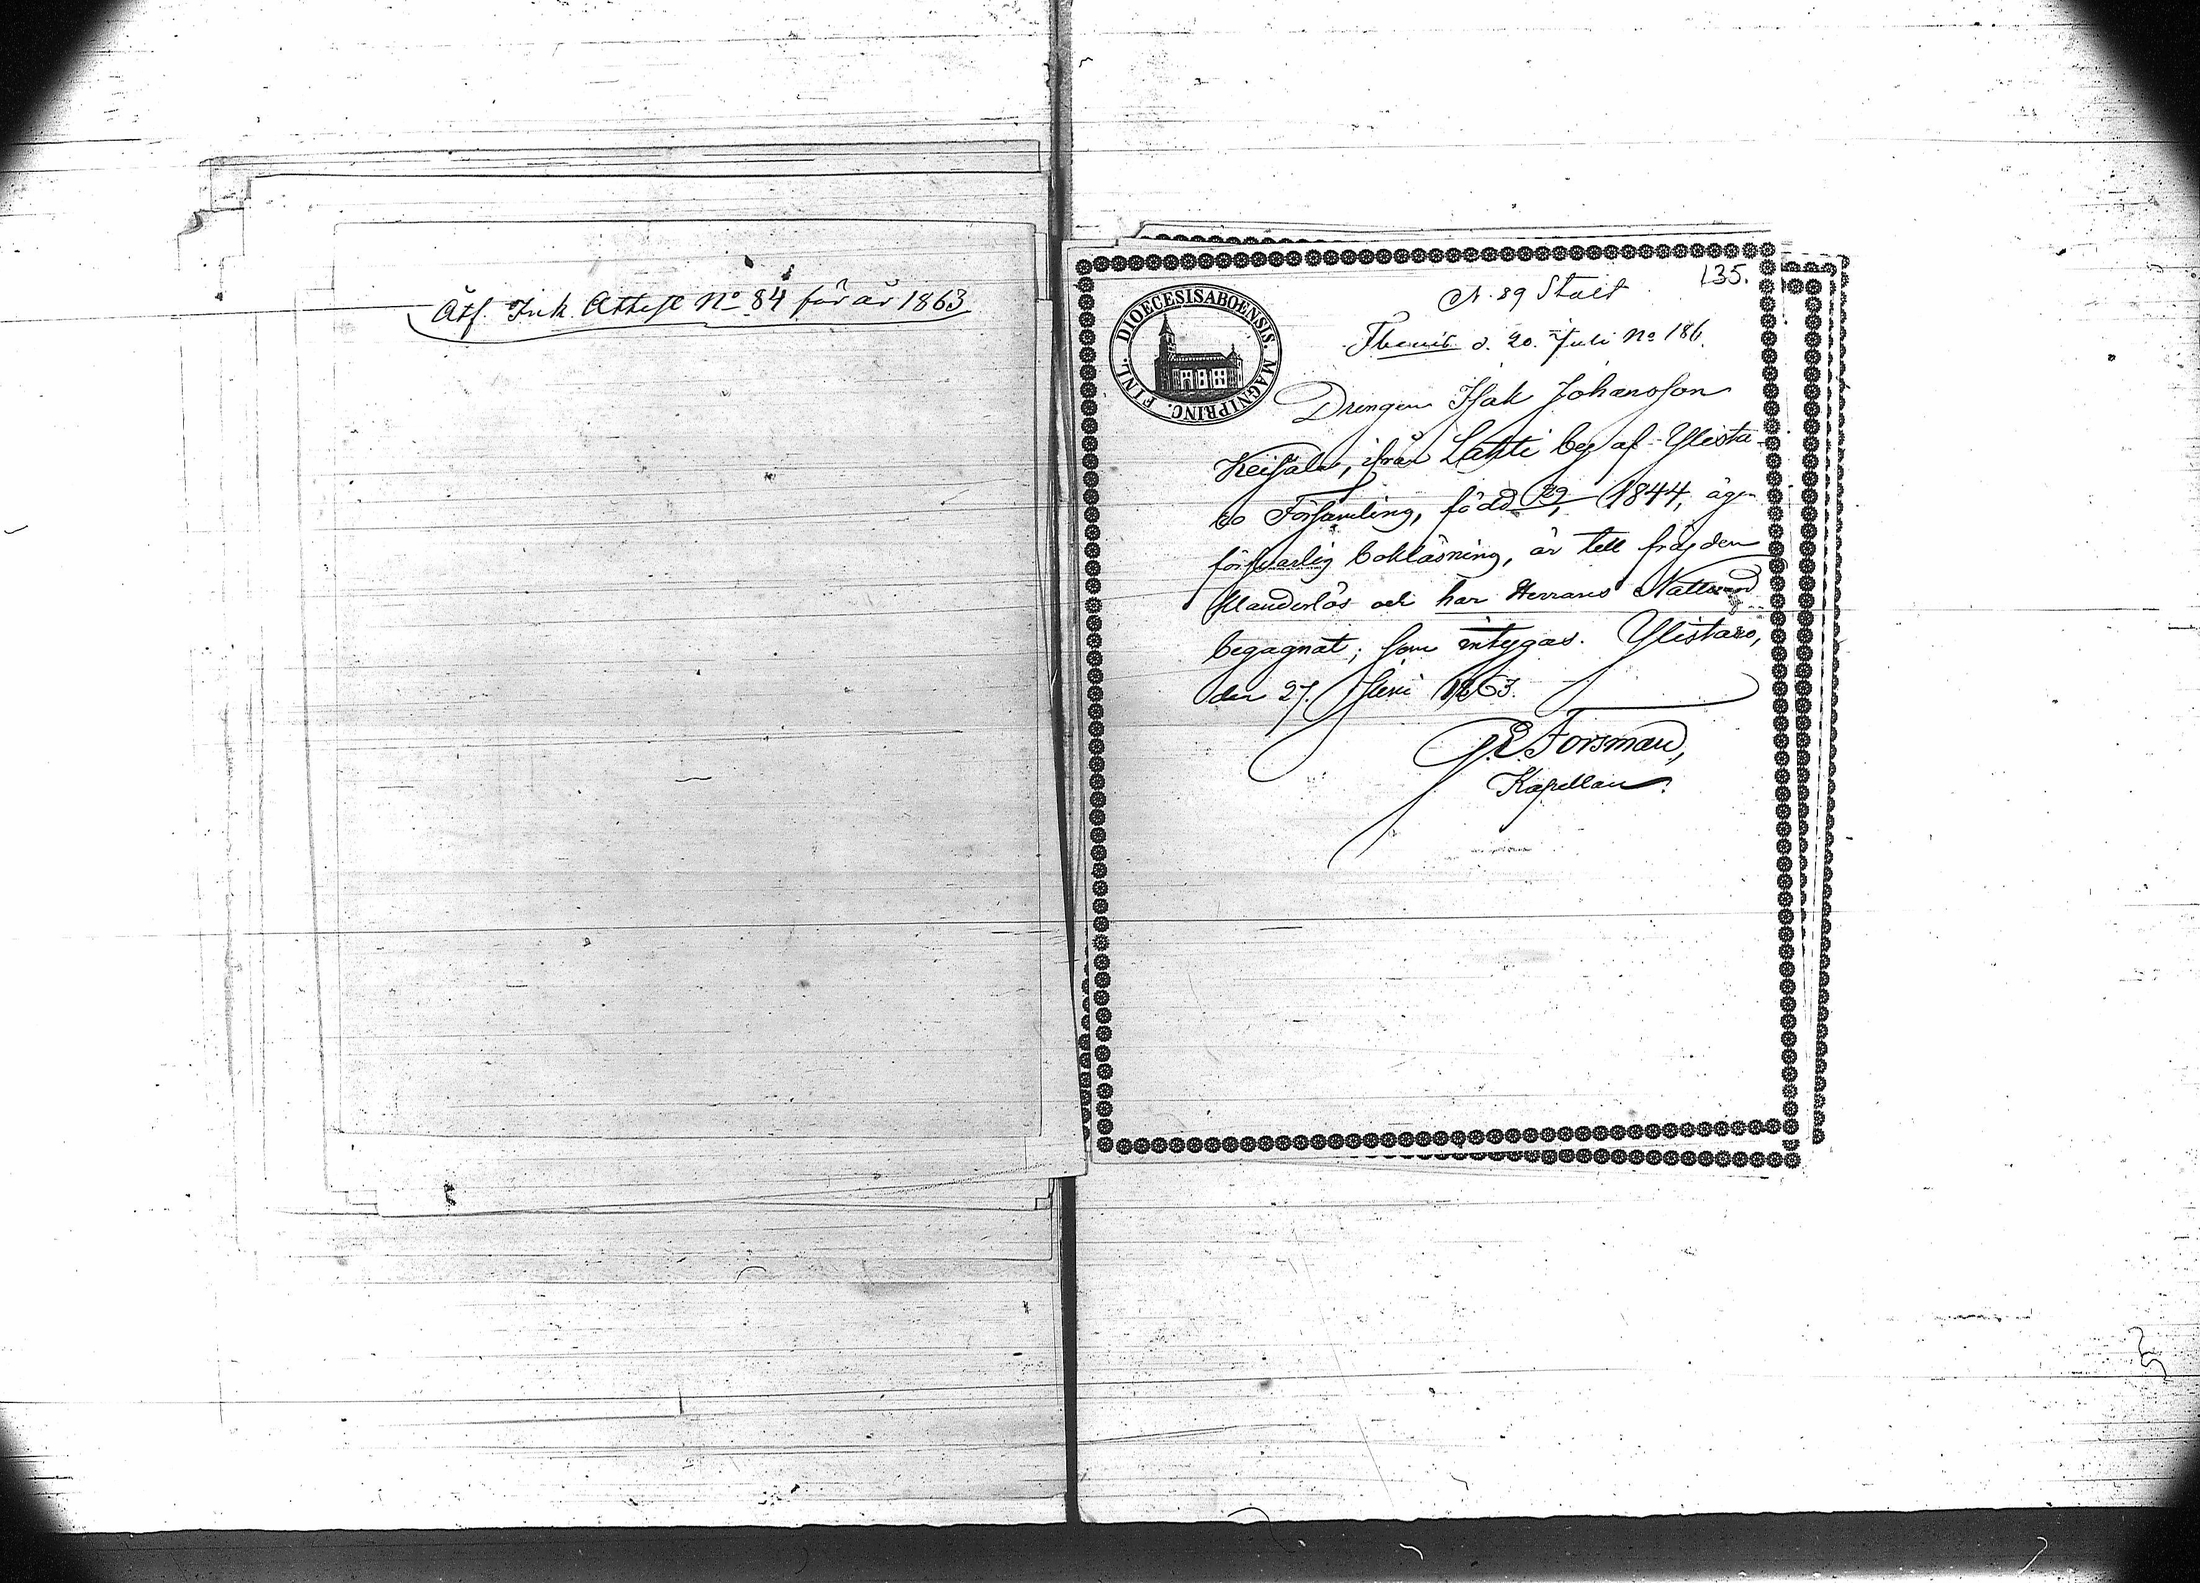 Att. Ink. Attest No 84 för år 1863
135.
N. 89
DIOECESISABOENSIS. MAGNIPRINC. FINL.
d. 20. Juli No 186
Drengen Isak Johansson
ifrån Lahti by af Ylista-
ro Församling, född 29/ 1844, äger
försvarlig bokläsning, är till frejden
klanderlös och har Herrans Nattvard
begagnat; som intygas. Ylistaro,
den 27. Juni 1863.
Forsman,
Kapellan.